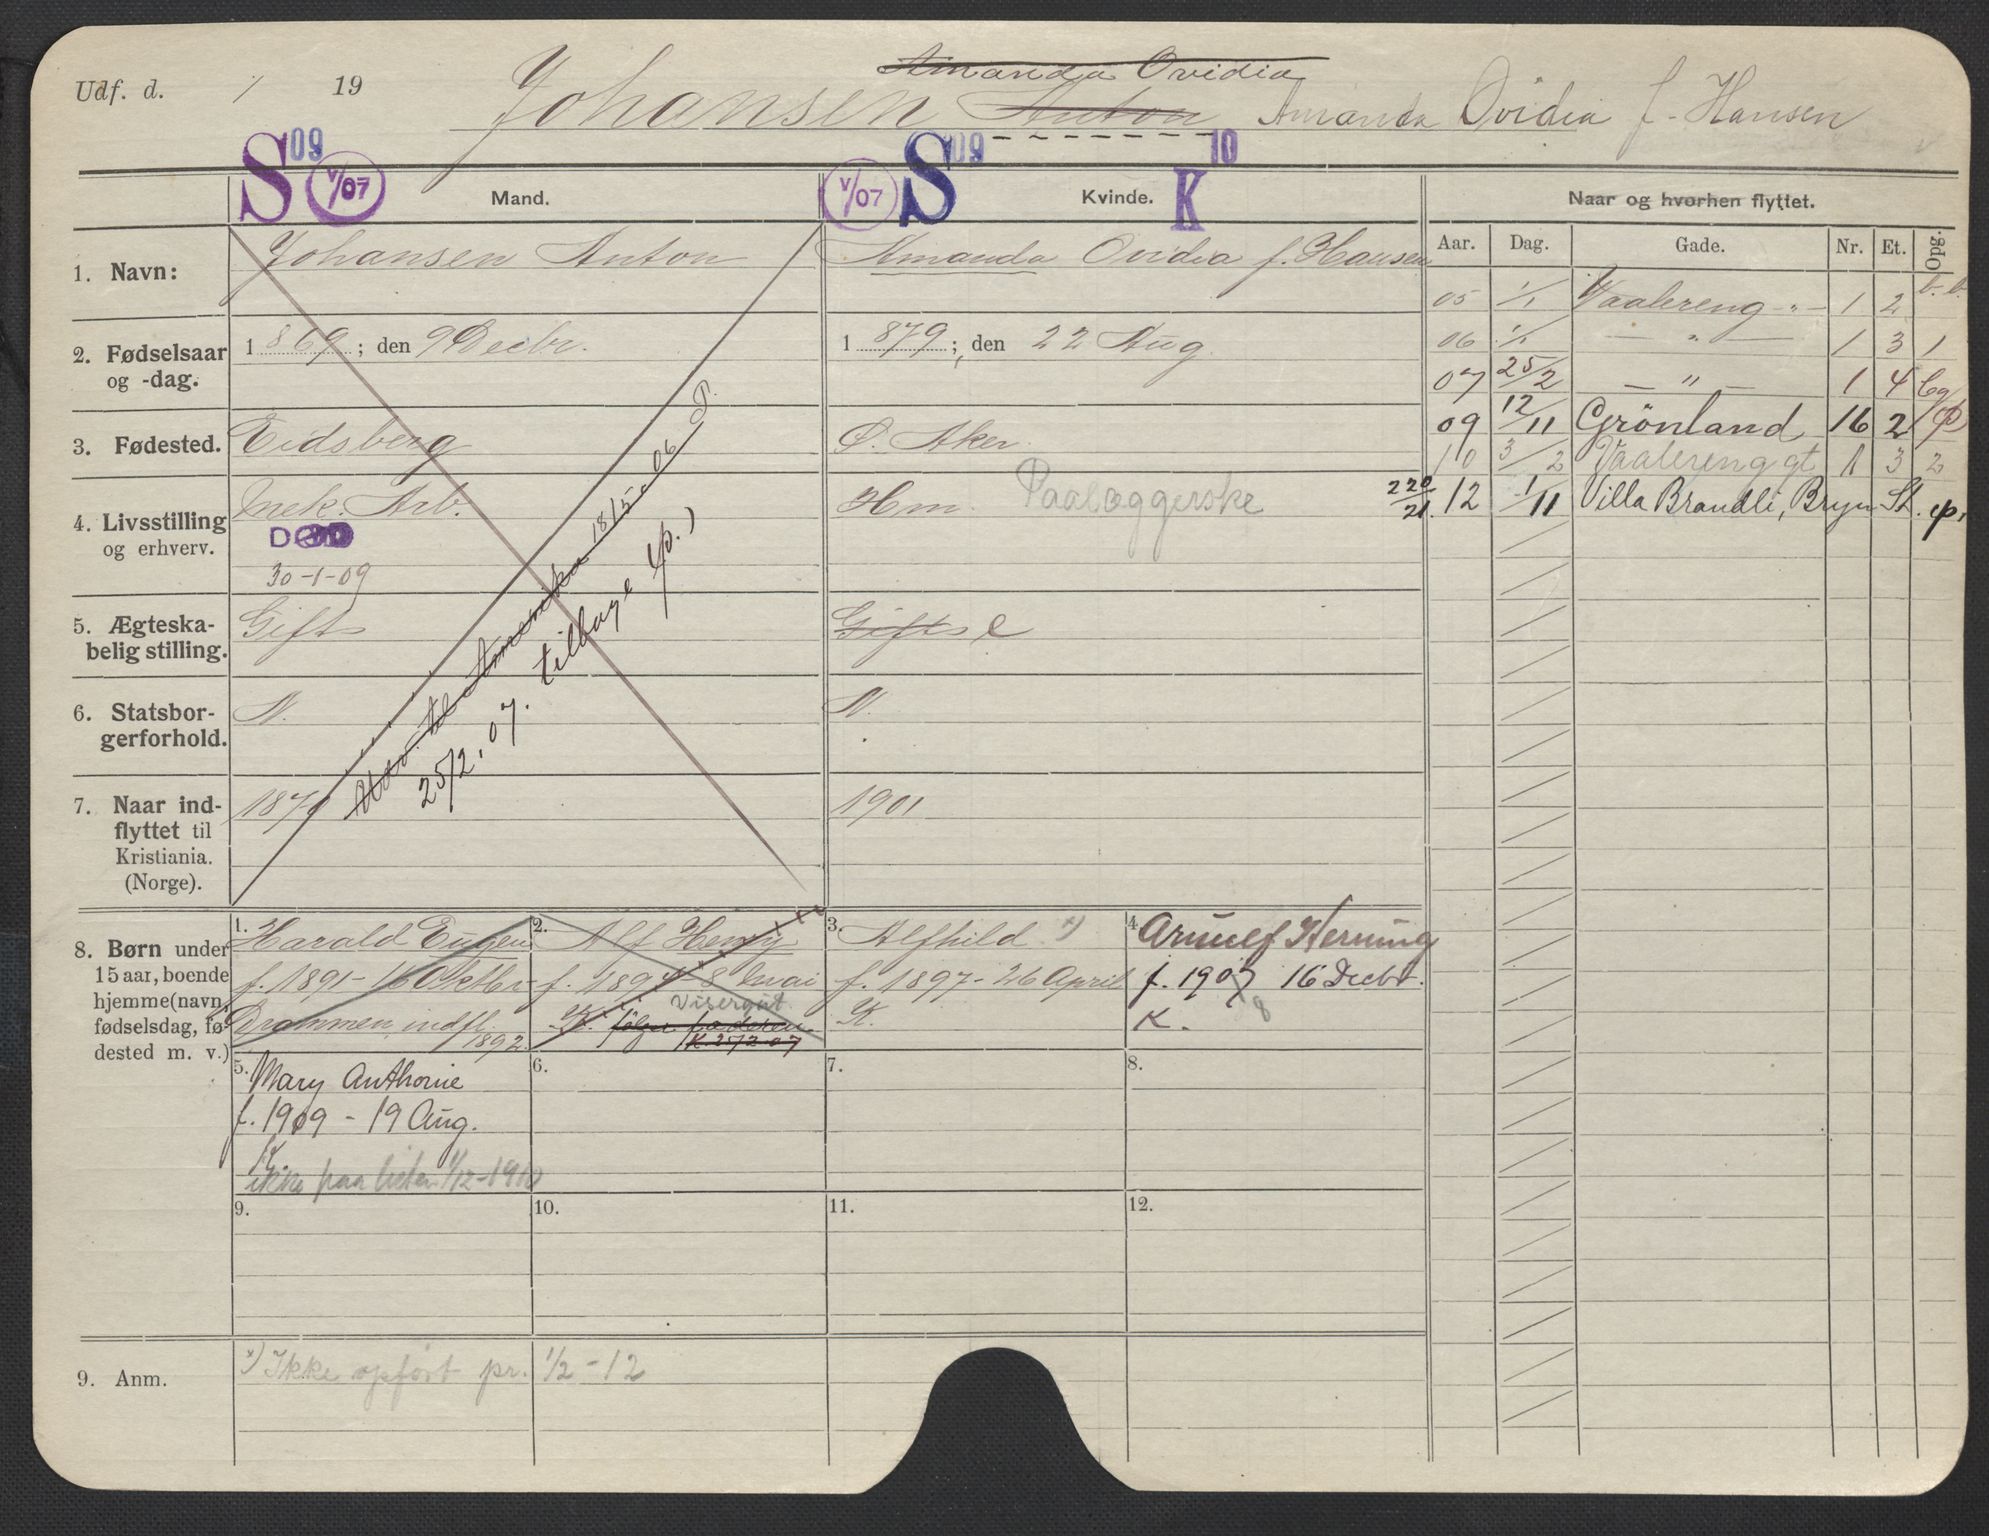 Udf. d. / 19
Amanda Ovidia
Johansen Anton Amanda Ovidia f. Hansen
S 09 V/07 Mand. V/07 S 09 Kvinde. K 10 Naar og hvorhen flyttet.
Aar. Dag. Gade. Nr. Et. Opg.
1. Navn: Johansen Anton Amanda Ovidia f. Hansen
05 1/1 Vaalereng - " - 1 2 b. b.
2. Fødselsaar og -dag. 1869; den 9 Decbr. 1879; den 22 Aug.
06 1/1 — " — 1 3 1
07 25/2 — " — 1 4
3. Fødested. Eidsberg Ø. Aker
09 12/11 Grönland 16 2
10 3/2 Vaalereng gt 1 3 2
4. Livsstilling og erhverv. Mek. Arb. Hm. Paalæggerske
220/21. 12 1/11 Villa Brandli, Bryn St. op.
DØD
30-1-09
5. Ægteska-
belig stilling. Gift Gift e
6. Statsbor-
gerforhold. N. N.
Udv. til Amerika 18/5 06
25/2. 07. tilbage
7. Naar ind-
flyttet til
Kristiania.
(Norge). 1879 1901
8. Børn under
15 aar, boende
hjemme (navn,
fødselsdag, fø-
dested m. v.)
1. Harald Eugen
f. 1891 - 16 Oktbr
Drammen indfl. 1892
2. Alf Henry
f. 1894 8 Mai
Visergut
K. følger faderen
K. 25/2-07
3. Alfhild x)
f. 1897 - 26 April
K.
4. Arnulf Herning
f. 1907 16 Decbr.
8
K.
5. Mary Anthonie
f. 1909 - 19 Aug.
K.
ikke paa listen 1/12-1910
6.
7.
8.
9.
10.
11.
12.
9. Anm. x) Ikke opført pr. 1/2 - 12